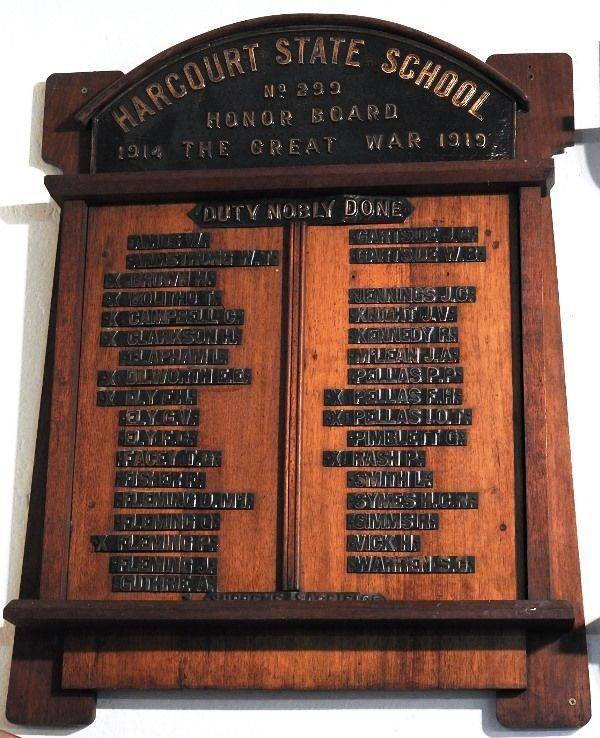 HARCOURT STATE SCHOOL
No 299
HONOR BOARD
1914 THE GREAT WAR 1919
DUTY NOBLY DONE
ARMSTRONG W.A.
X BROWN H.
X BOLITHO T.
X CAMPBELL C.
X CLARKSON H.
CLAPHAM L.
X DILWORTH E.E.
X ELY E.H.
ELY G.V.
ELY F.C.
FACEY
FISHER F.
FLEMING D. MT.
FLEMING O.
X FLEMING
FLEMING J.
GUTHRIE A.
GARTSIDE
GARTSIDE W.B.
JENNINGS J.C.
KNIGHT J.A.V.
KENNEDY R.
McLEAN J.A.
PELLAS P.P.
X PELLAS F.H.
X PELLAS J.O.T.
PIMBLETT
X RASH P.
SMITH L.
SYMES
SIMMS R.
VICK H.
WARREN S.O.
X SUPREME SACRIFICE